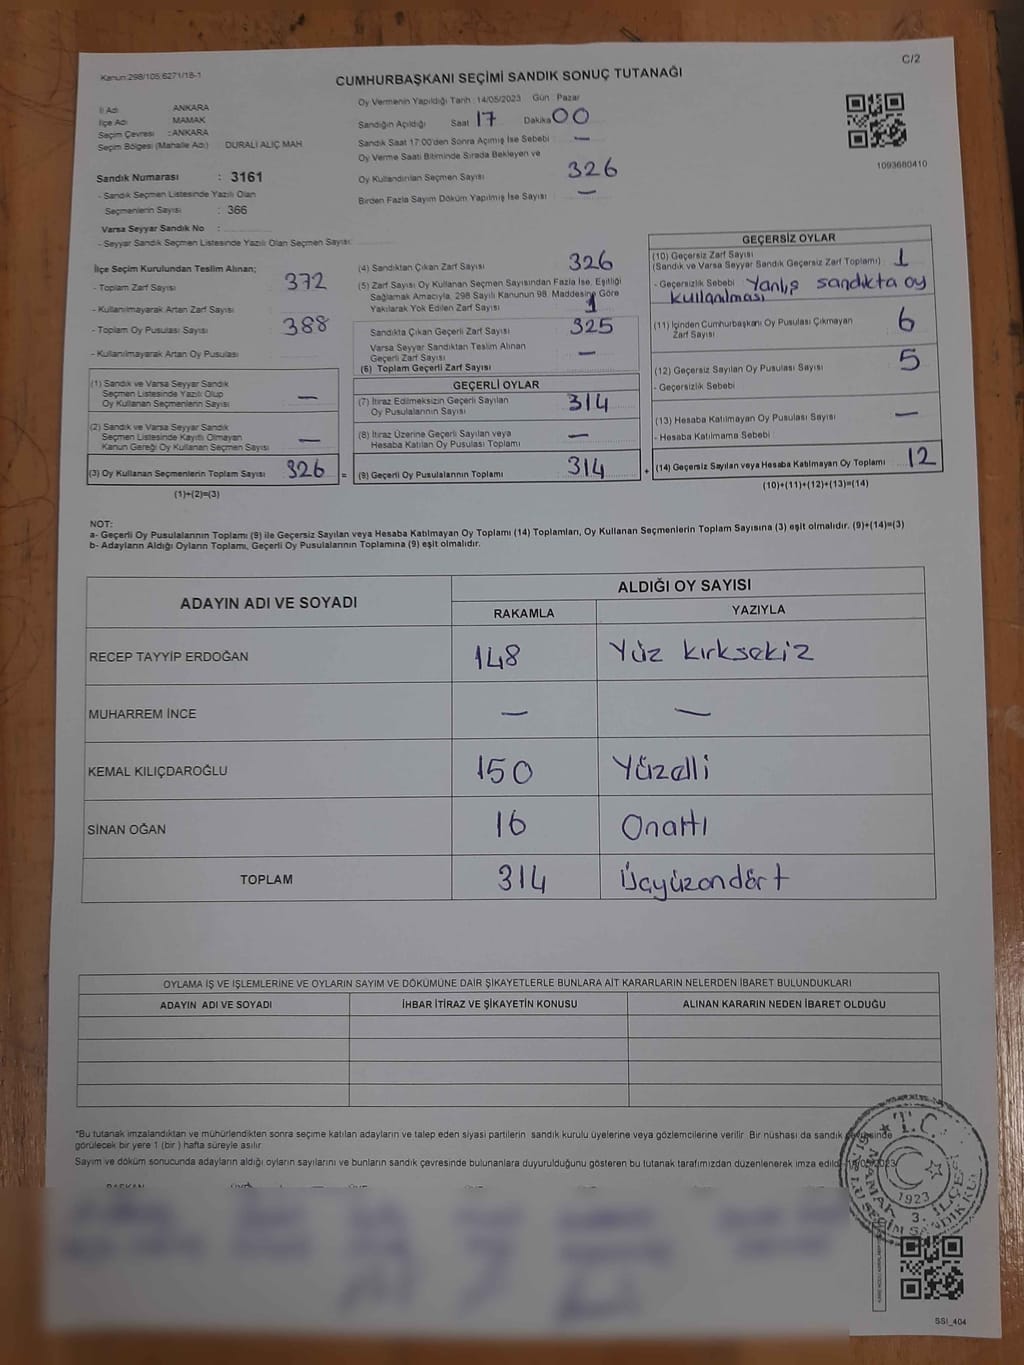 Kanun:298/105;6271/18-1
C/2
CUMHURBAŞKANI SEÇİMİ SANDIK SONUÇ TUTANAĞI
İl Adı ANKARA
İlçe Adı MAMAK
Seçim Çevresi : ANKARA
Seçim Bölgesi (Mahalle Adı) DURALİ ALIÇ MAH
Sandık Numarası : 3161
- Sandık Seçmen Listesinde Yazılı Olan
Seçmenlerin Sayısı : 366
Varsa Seyyar Sandık No :
- Seyyar Sandık Seçmen Listesinde Yazılı Olan Seçmen Sayısı:
Oy Vermenin Yapıldığı Tarih : 14/05/2023 Gün : Pazar
Sandığın Açıldığı Saat 17 Dakika 00
Sandık Saat 17:00'den Sonra Açılmış İse Sebebi : —
Oy Verme Saati Bitiminde Sırada Bekleyen ve
Oy Kullandırılan Seçmen Sayısı : 326
Birden Fazla Sayım Döküm Yapılmış İse Sayısı : —
1093680410
İlçe Seçim Kurulundan Teslim Alınan;
- Toplam Zarf Sayısı : 372
- Kullanılmayarak Artan Zarf Sayısı :
- Toplam Oy Pusulası Sayısı : 388
- Kullanılmayarak Artan Oy Pusulası :
(1) Sandık ve Varsa Seyyar Sandık
Seçmen Listesinde Yazılı Olup
Oy Kullanan Seçmenlerin Sayısı —
(2) Sandık ve Varsa Seyyar Sandık
Seçmen Listesinde Kayıtlı Olmayan
Kanun Gereği Oy Kullanan Seçmen Sayısı —
(3) Oy Kullanan Seçmenlerin Toplam Sayısı 326 =
(1)+(2)=(3)
(4) Sandıktan Çıkan Zarf Sayısı 326
(5) Zarf Sayısı Oy Kullanan Seçmen Sayısından Fazla İse, Eşitliği
Sağlamak Amacıyla, 298 Sayılı Kanunun 98. Maddesine Göre
Yakılarak Yok Edilen Zarf Sayısı 1
Sandıkta Çıkan Geçerli Zarf Sayısı 325
Varsa Seyyar Sandıktan Teslim Alınan
Geçerli Zarf Sayısı —
(6) Toplam Geçerli Zarf Sayısı
GEÇERLİ OYLAR
(7) İtiraz Edilmeksizin Geçerli Sayılan
Oy Pusulalarının Sayısı 314
(8) İtiraz Üzerine Geçerli Sayılan veya
Hesaba Katılan Oy Pusulası Toplamı —
(9) Geçerli Oy Pusulalarının Toplamı 314 +
GEÇERSİZ OYLAR
(10) Geçersiz Zarf Sayısı
(Sandık ve Varsa Seyyar Sandık Geçersiz Zarf Toplamı) 1
- Geçersizlik Sebebi Yanlış sandıkta oy
kullanılması
(11) İçinden Cumhurbaşkanı Oy Pusulası Çıkmayan
Zarf Sayısı 6
(12) Geçersiz Sayılan Oy Pusulası Sayısı 5
- Geçersizlik Sebebi
(13) Hesaba Katılmayan Oy Pusulası Sayısı —
- Hesaba Katılmama Sebebi
(14) Geçersiz Sayılan veya Hesaba Katılmayan Oy Toplamı 12
(10)+(11)+(12)+(13)=(14)
NOT:
a- Geçerli Oy Pusulalarının Toplamı (9) ile Geçersiz Sayılan veya Hesaba Katılmayan Oy Toplamı (14) Toplamları, Oy Kullanan Seçmenlerin Toplam Sayısına (3) eşit olmalıdır. (9)+(14)=(3)
b- Adayların Aldığı Oyların Toplamı, Geçerli Oy Pusulalarının Toplamına (9) eşit olmalıdır.
ADAYIN ADI VE SOYADI ALDIĞI OY SAYISI
RAKAMLA YAZIYLA
RECEP TAYYİP ERDOĞAN 148 Yüz kırksekiz
MUHARREM İNCE — —
KEMAL KILIÇDAROĞLU 150 Yüzelli
SİNAN OĞAN 16 Onaltı
TOPLAM 314 Üçyüzondört
OYLAMA İŞ VE İŞLEMLERİNE VE OYLARIN SAYIM VE DÖKÜMÜNE DAİR ŞİKAYETLERLE BUNLARA AİT KARARLARIN NELERDEN İBARET BULUNDUKLARI
ADAYIN ADI VE SOYADI İHBAR İTİRAZ VE ŞİKAYETİN KONUSU ALINAN KARARIN NEDEN İBARET OLDUĞU
*Bu tutanak imzalandıktan ve mühürlendikten sonra seçime katılan adayların ve talep eden siyasi partilerin sandık kurulu üyelerine veya gözlemcilerine verilir. Bir nüshası da sandık çevresinde
görülecek bir yere 1 (bir) hafta süreyle asılır.
Sayım ve döküm sonucunda adayların aldığı oyların sayılarını ve bunların sandık çevresinde bulunanlara duyurulduğunu gösteren bu tutanak tarafımızdan düzenlenerek imza edildi.
T.C.
1923
3. İLÇESİ
SSİ_404